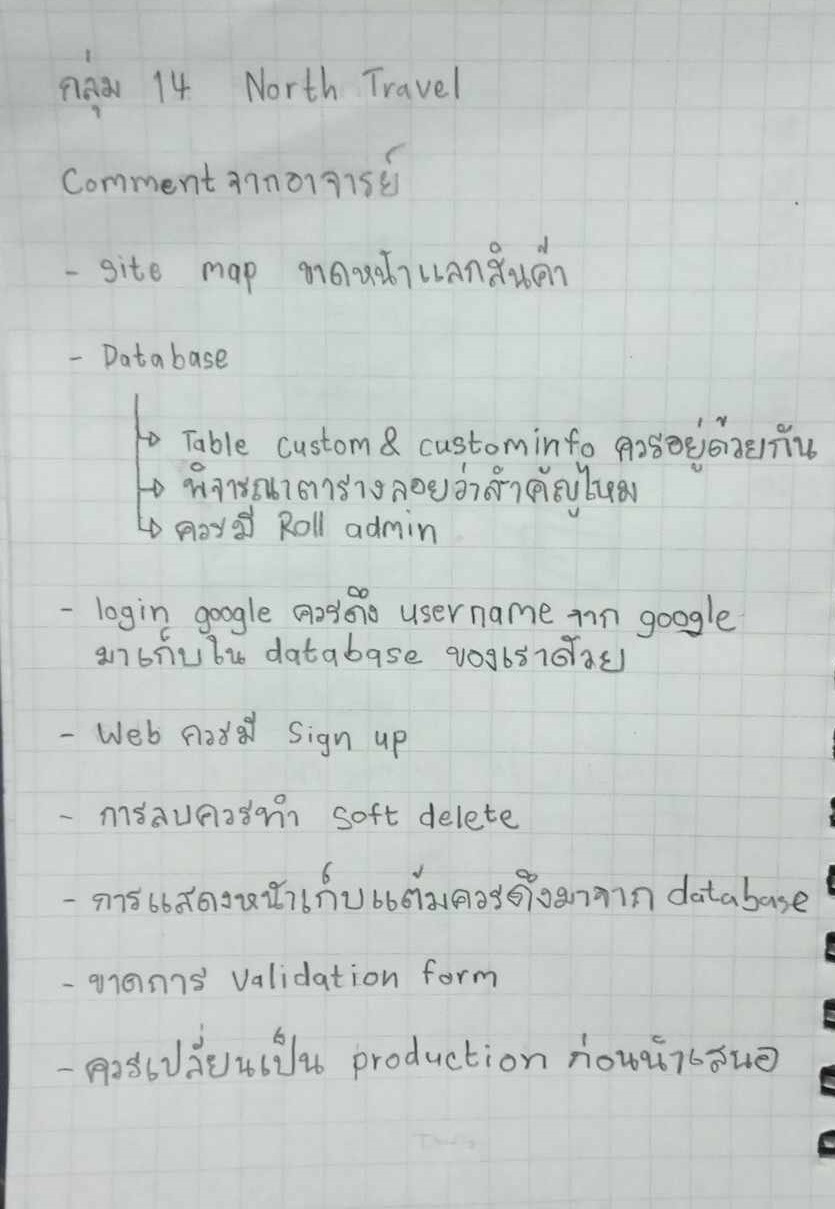 กลุ่ม 14 North Travel
Comment จากอาจารย์
- site map ขาดหน้าแลกสินค้า
- Database
Table custom & custominfo ควรอยู่ด้วยกัน
พิจารณาตารางลอยว่าสำคัญไหม
ควรมี Roll admin
- login google ควรดึง username จาก google
มาเก็บใน database ของเราด้วย
- Web ควรมี Sign up
- การลบควรทำ soft delete
- การแสดงหน้าเก็บแต้มควรดึงมาจาก database
- ขาดการ validation form
- ควรเปลี่ยนเป็น production ก่อนนำเสนอ